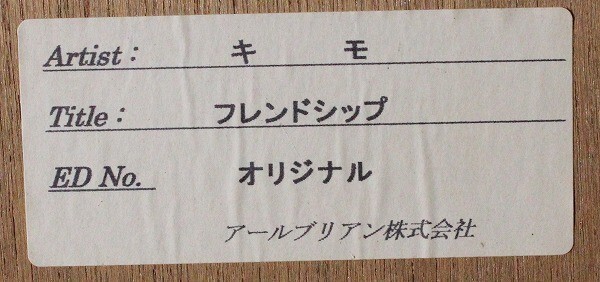 Artist: キ モ
Title: フレンドシップ
ED No. オリジナル
アールブリアン株式会社